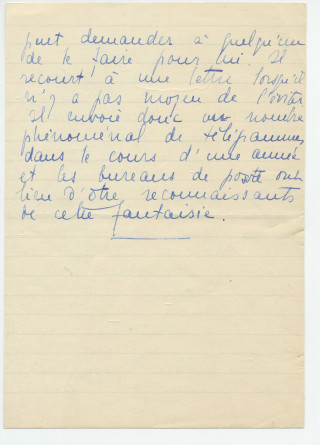 peut demander à quelqu'un
de le faire pour lui. Il
recourt à une lettre lorsqu'il
n'y a pas moyen de l'éviter.
Il envoie donc un nombre
phénoménal de télégrammes
dans le cours d'une année
et les bureaux de poste ont
lieu d'être reconnaissants
de cette fantaisie.